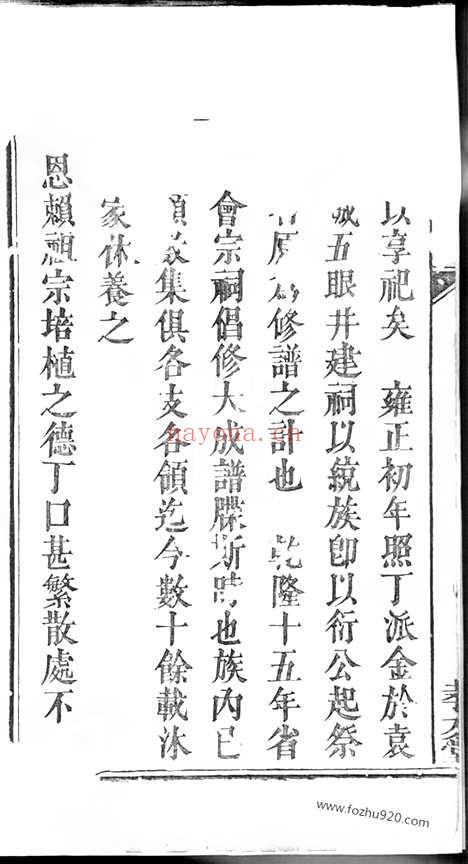 以享祀矣 雍正初年照丁派金於袁
城五眼井建祠以統族卽以衍公起祭
修譜之計也 乾隆十五年省
會宗祠倡修大成譜牒斯時也族內已
集俱各支各領迄今數十餘載沐
家休養之
恩賴祖宗培植之德丁口甚繁散處不
nayona.cn
www.fozhu920.com